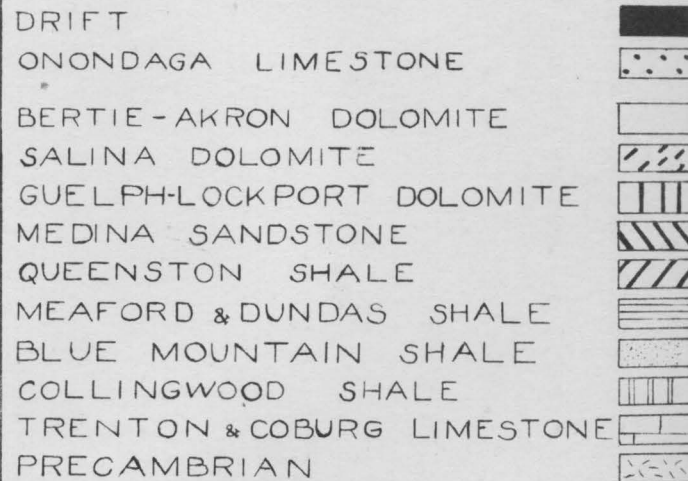 DRIFT
ONONDAGA LIMESTONE
BERTIE-AKRON DOLOMITE
SALINA DOLOMITE
GUELPH-LOCKPORT DOLOMITE
MEDINA SANDSTONE
QUEENSTON SHALE
MEAFORD & DUNDAS SHALE
BLUE MOUNTAIN SHALE
COLLINGWOOD SHALE
TRENTON & COBURG LIMESTONE
PRECAMBRIAN